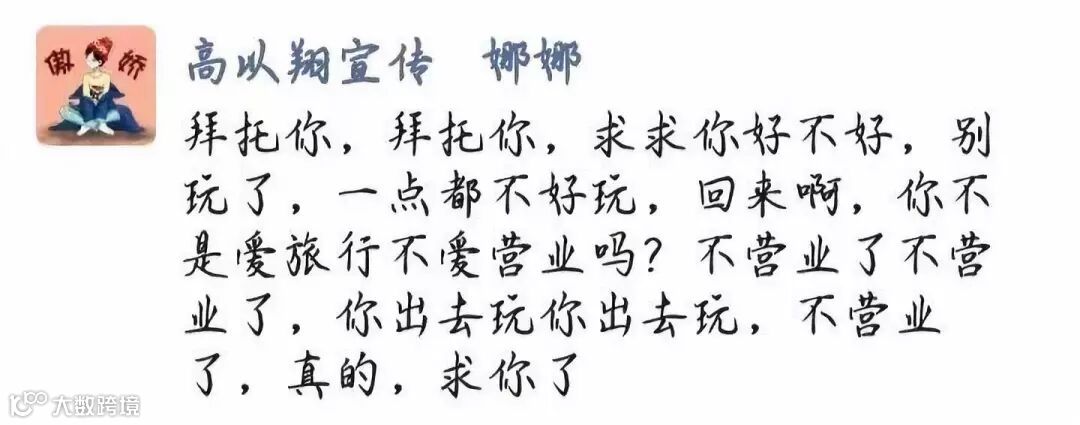 傲 娇
高以翔宣传 娜娜
拜托你，拜托你，求求你好不好，别
玩了，一点都不好玩，回来啊，你不
是爱旅行不爱营业吗？不营业了不营
业了，你出去玩你出去玩，不营业
了，真的，求你了
大数跨境